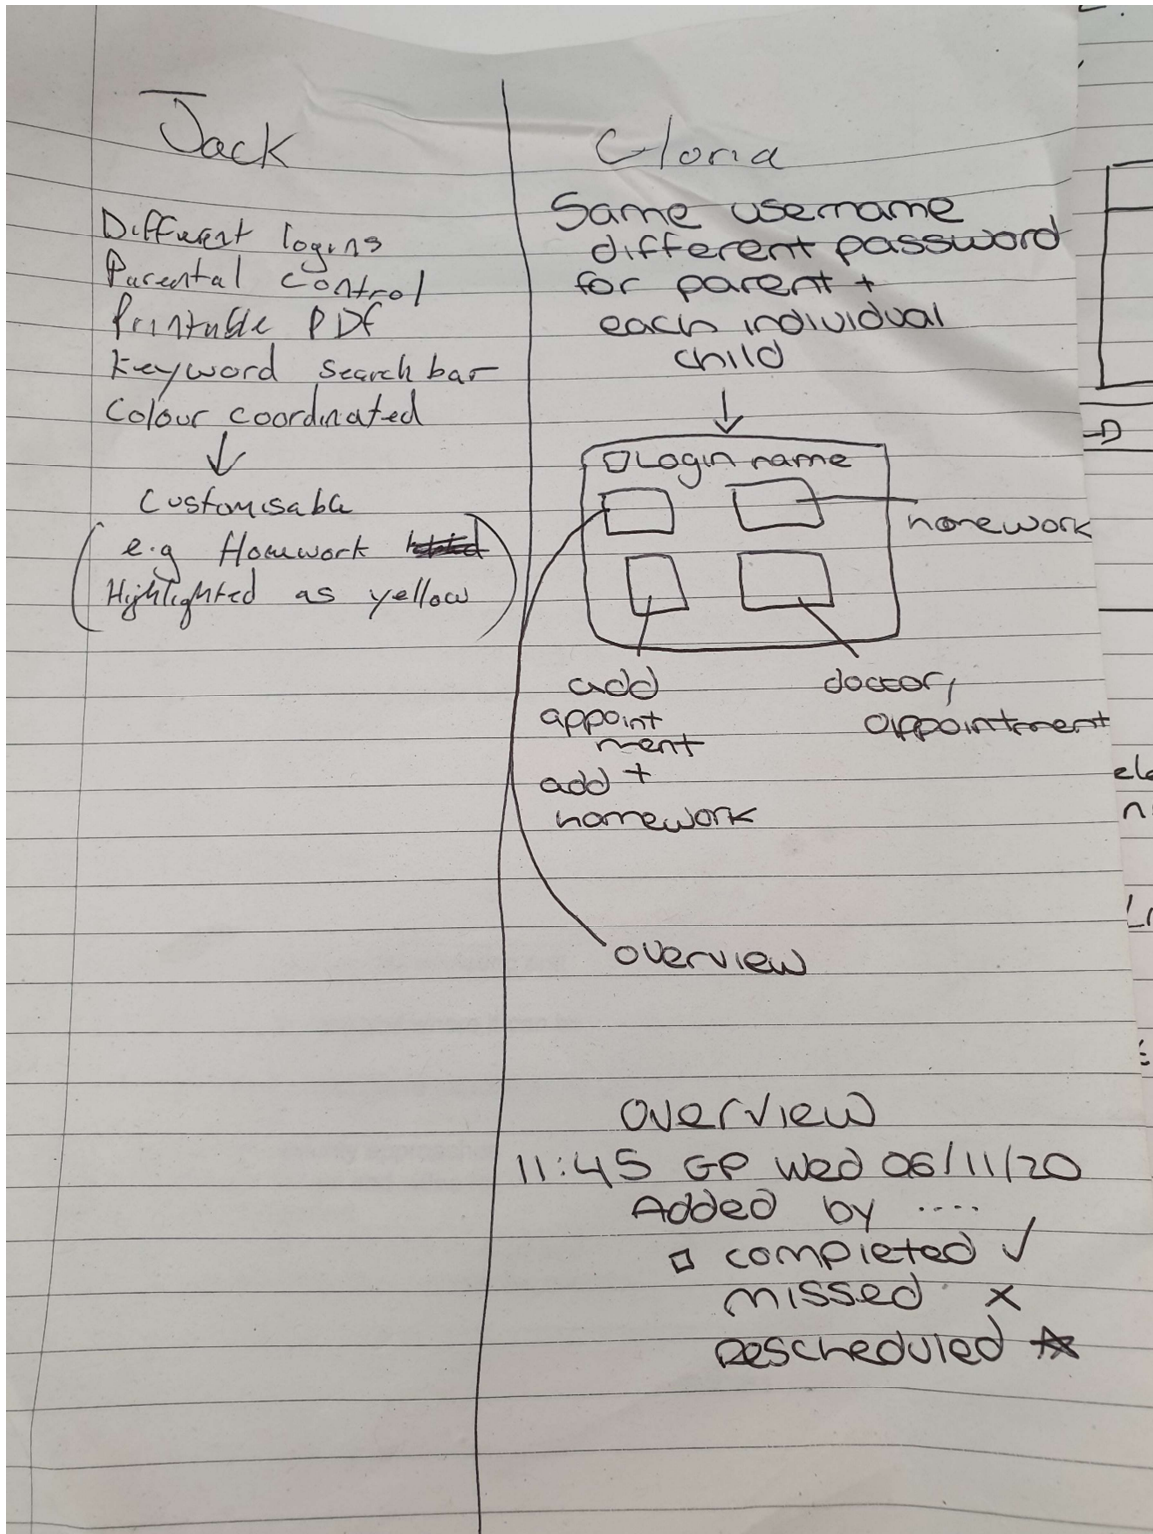 Jack
Different logins
Parental control
Printable PDF
Keyword search bar
Colour coordinated
↓
Customisable
(e.g Homework
Highlighted as yellow)
Gloria
Same username
different password
for parent +
each individual
child
↓
Login name
homework
add
appoint
ment
+
add
homework
doctor,
appointment
overview
overview
11:45 GP Wed 06/11/20
Added by ....
□ completed ✓
missed x
Rescheduled ☆